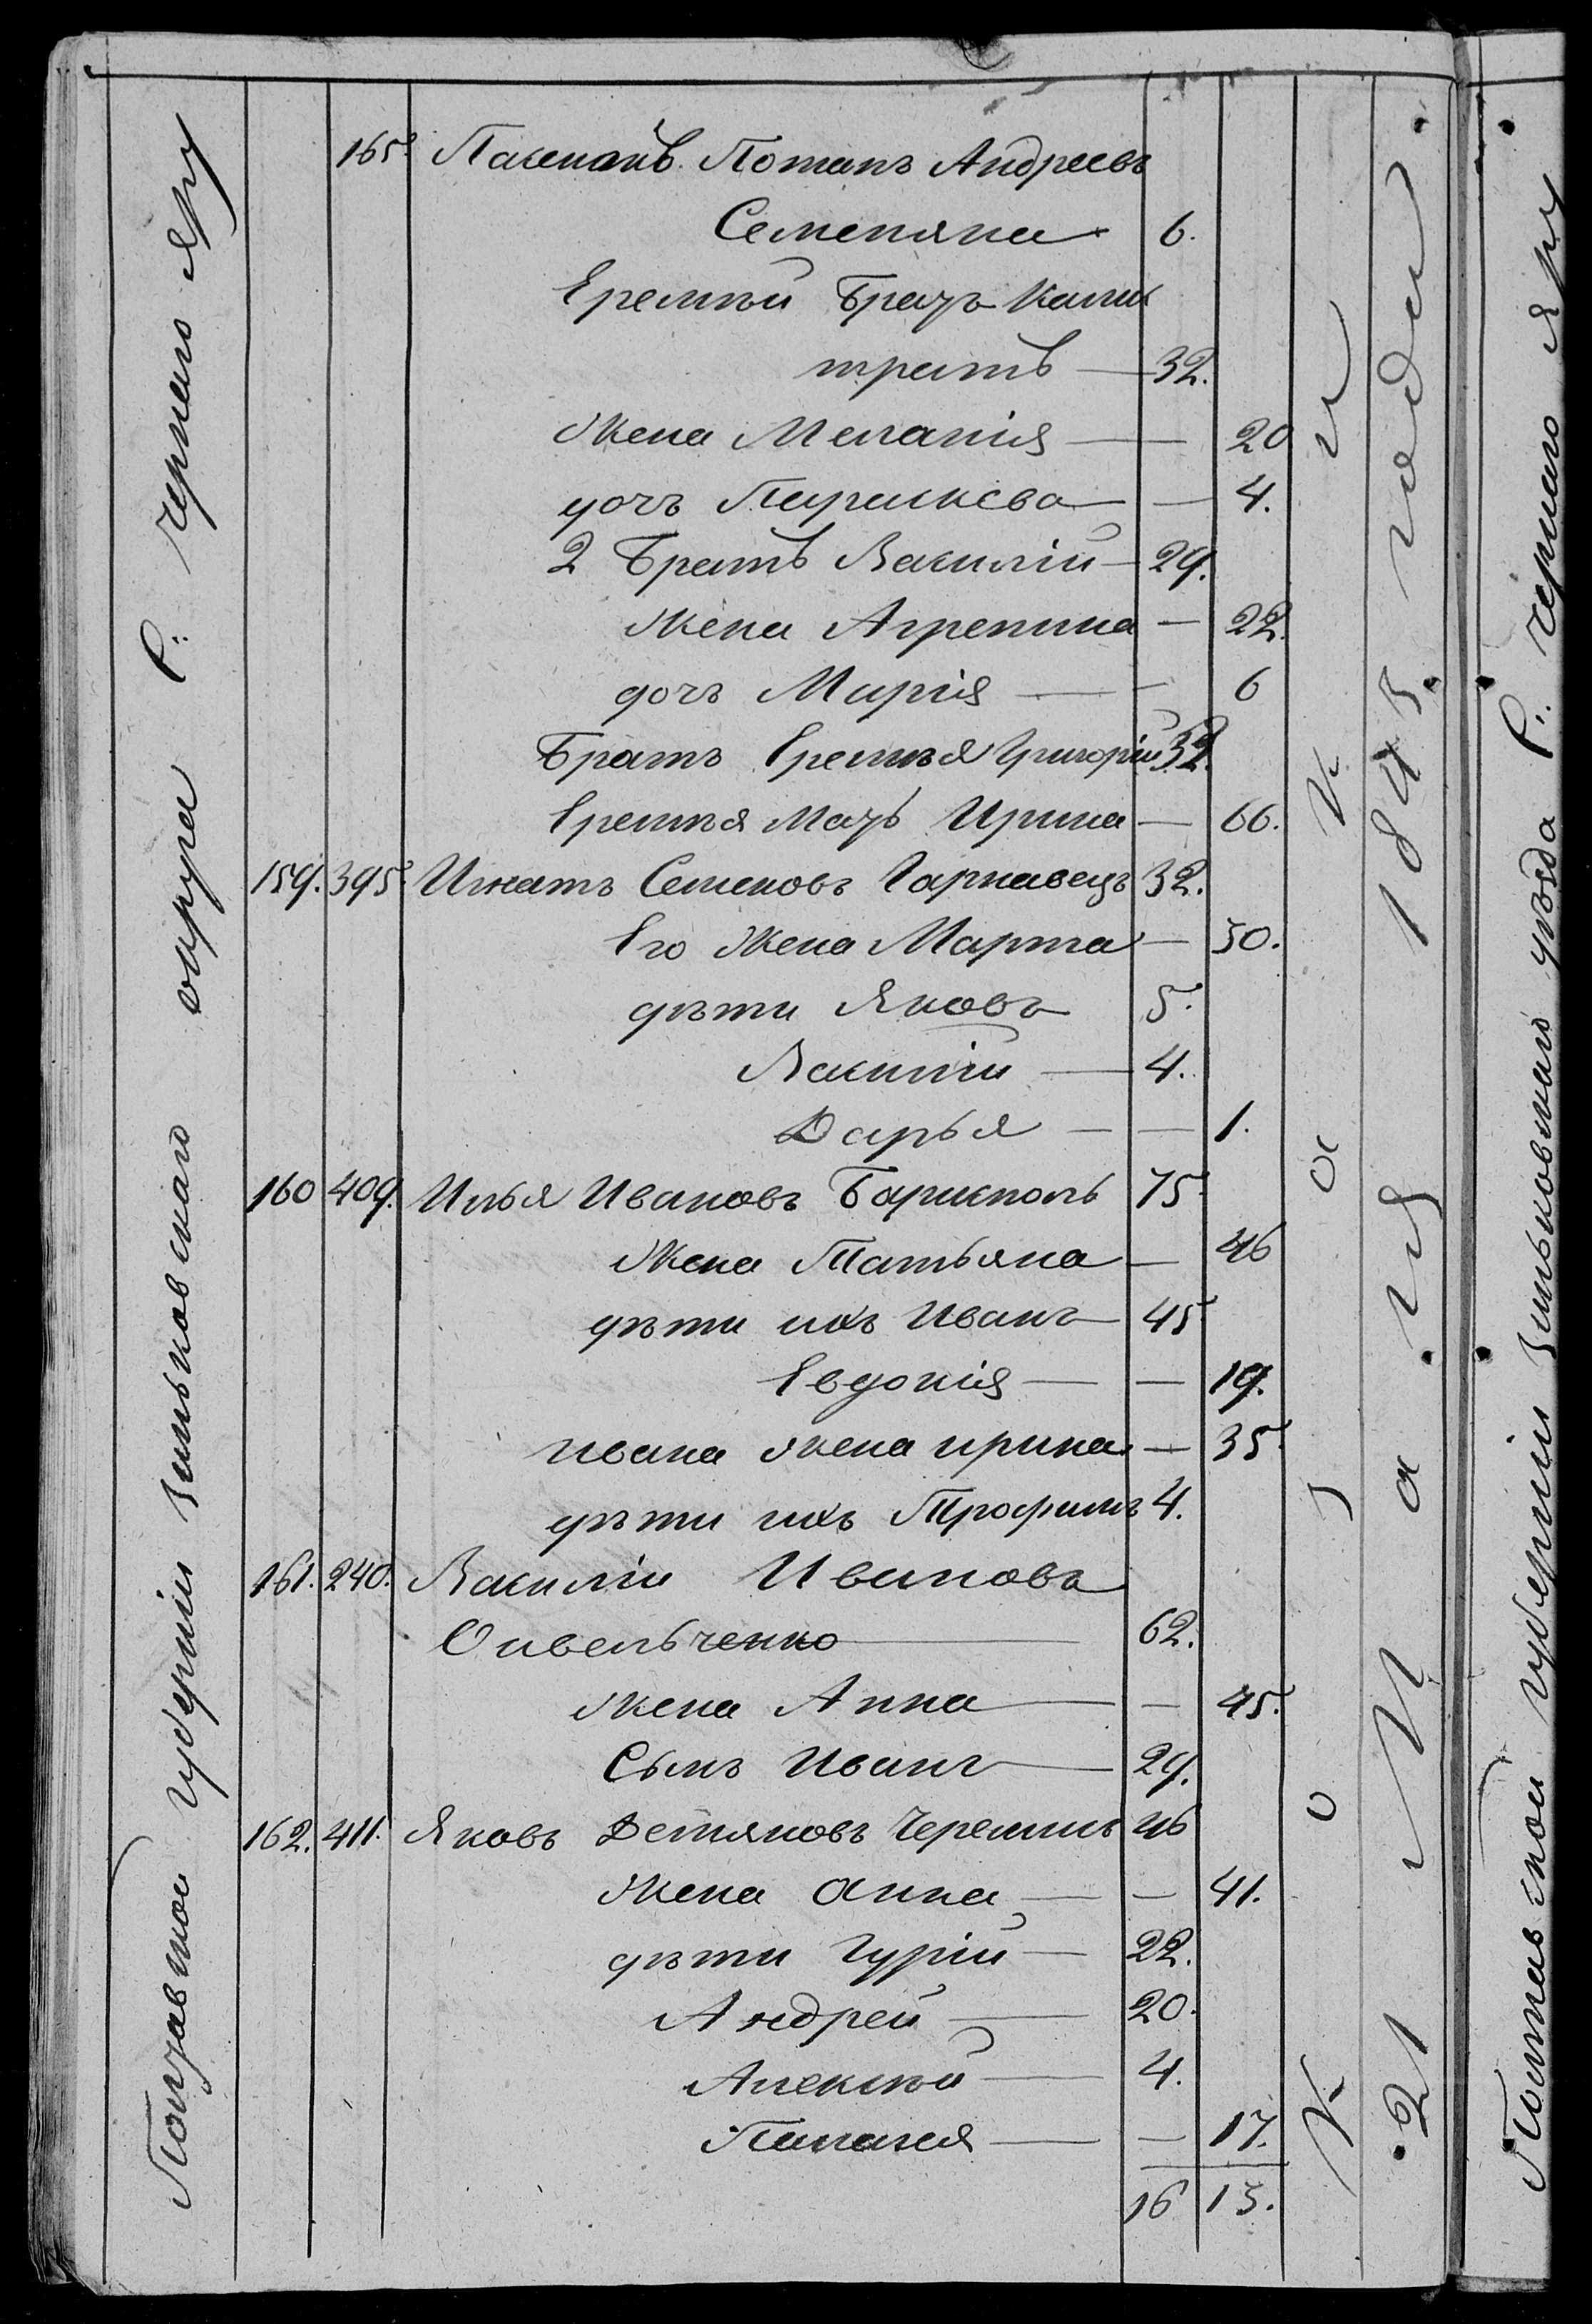 Полтавской губерніи Зиньковскаго округа С: Чернаго Яру
165. Пасенокъ Потапъ Андреевъ
Семеняка 6.
Еремѣй Братъ Кали
стратъ — 32.
Жена Меланія — 20
дочь Парискева — 4.
2 Братъ Василій — 29.
Жена Агрепина — 22.
дочь Марія — 6
Братъ Еремѣя Григорій 32.
Еремѣя мать Ирина — 66.
159. 395. Игнатъ Семеновъ Гаркавецъ 32.
Его Жена Марта — 30.
дѣти Яковъ 5.
Василій — 4.
Дарья — 1.
160 409. Илья Ивановъ Барисполь 75.
Жена Татьяна — 46
дѣти ихъ Иванъ 45
Евдокія — 19.
Ивана жена Ирина — 35.
дѣти ихъ Трофимъ 4.
161. 240. Василій Ивановъ
Сивельченко 62.
жена Анна — 45.
Сынъ Иванъ 29.
162. 411. Яковъ Демяновъ Черемисъ 46
Жена Анна — 41.
дѣти Гурій — 22.
Андрей — 20.
Алексѣй — 4.
Палагея — 17.
16 13.
Козаки
21 Мая 1843 года.
Полтавской губерніи Зиньковскаго уѣзда С: Чернаго Яру